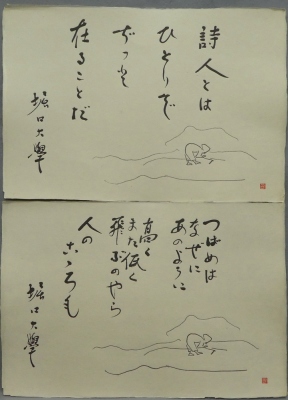 詩人とは
ひとりで
ぢつと
在ることだ
堀口大學
つばめは
なぜに
あのように
高く
また低く
飛ぶのやら
人の
こゝろも
堀口大學